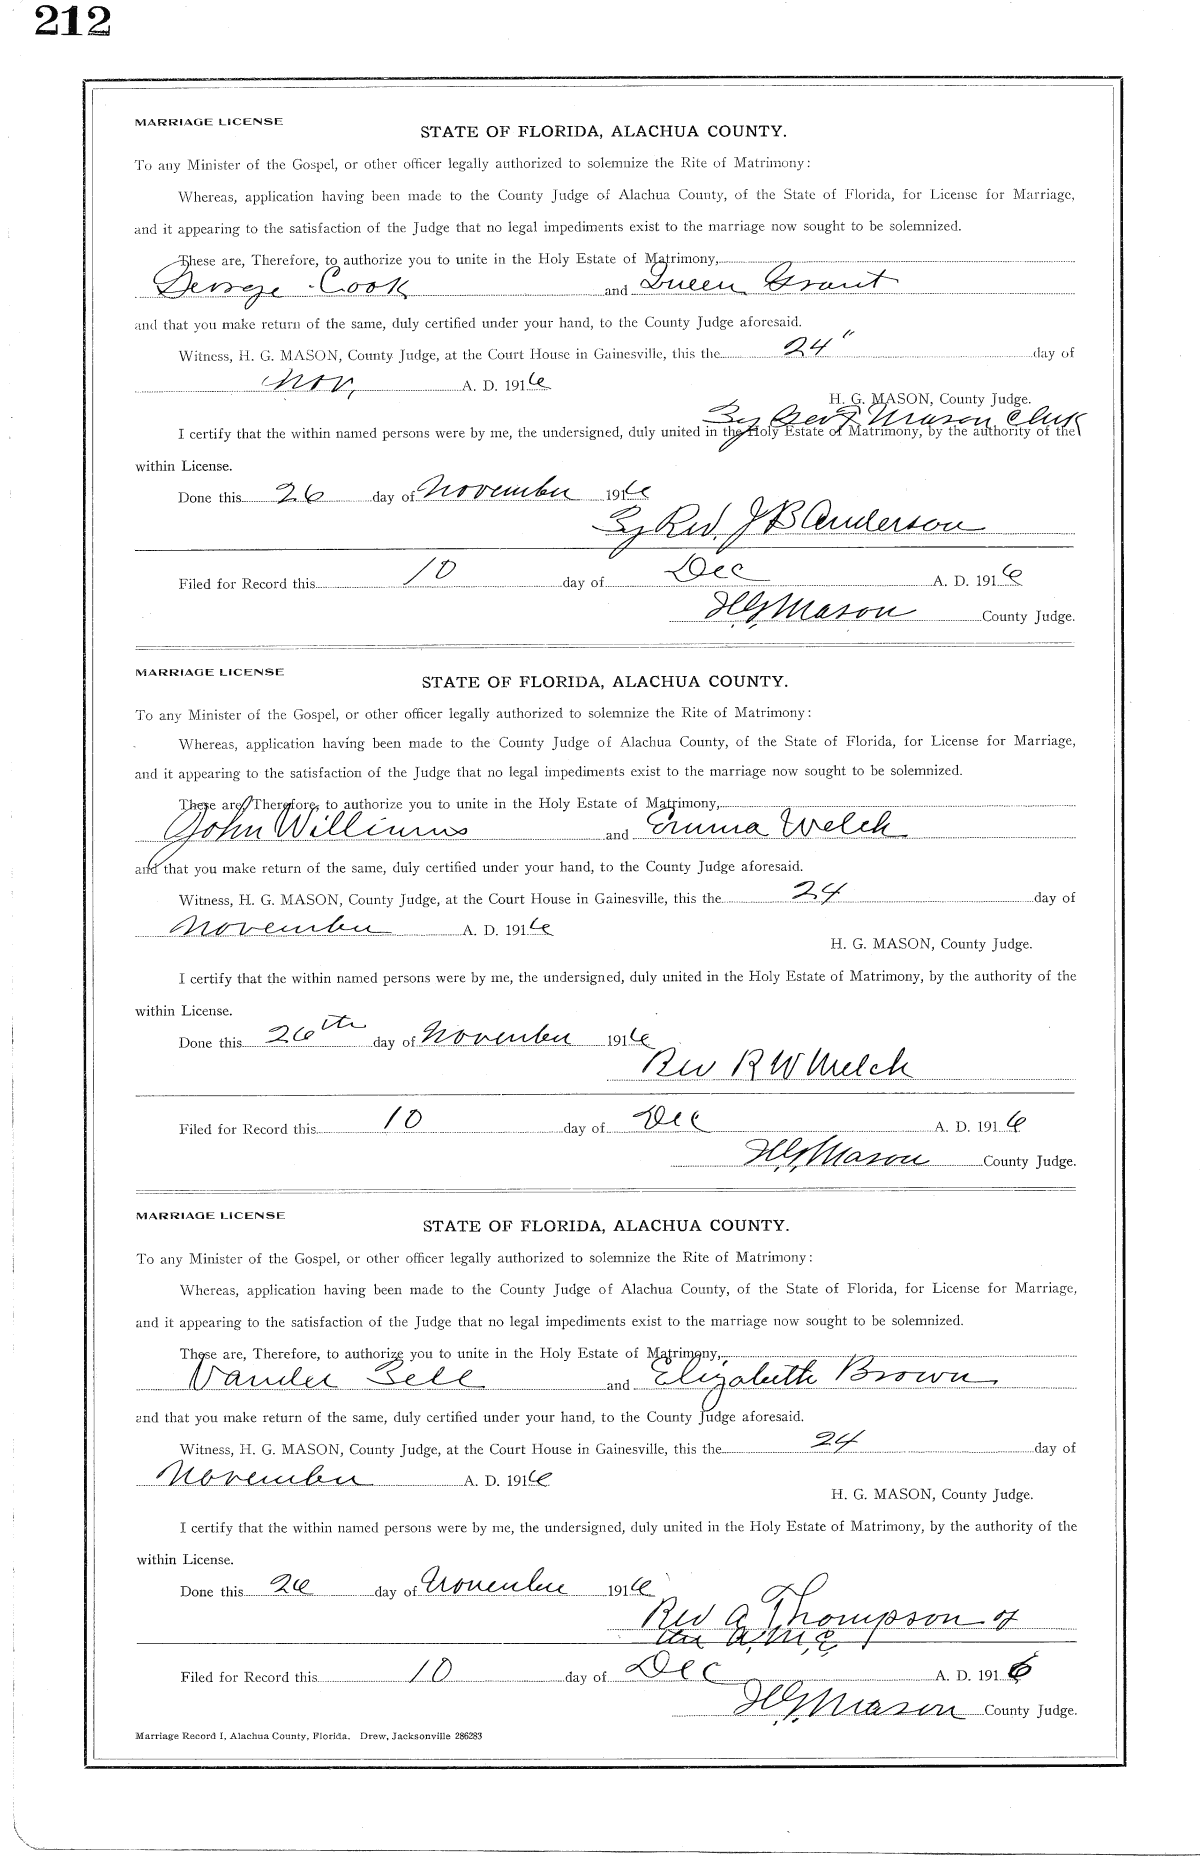 212
MARRIAGE LICENSE
STATE OF FLORIDA, ALACHUA COUNTY.
To any Minister of the Gospel, or other officer legally authorized to solemnize the Rite of Matrimony:
Whereas, application having been made to the County Judge of Alachua County, of the State of Florida, for License for Marriage,
and it appearing to the satisfaction of the Judge that no legal impediments exist to the marriage now sought to be solemnized.
These are, Therefore, to authorize you to unite in the Holy Estate of Matrimony,
George Cook and Queen Grant
and that you make return of the same, duly certified under your hand, to the County Judge aforesaid.
Witness, H. G. MASON, County Judge, at the Court House in Gainesville, this the 24" day of
Nov, A. D. 1916
H. G. MASON, County Judge.
By Geo F Mason Clerk
I certify that the within named persons were by me, the undersigned, duly united in the Holy Estate of Matrimony, by the authority of the
within License.
Done this 26 day of November 1916
By Rev. J B Anderson
Filed for Record this 10 day of Dec A. D. 1916
H.G. Mason County Judge.
MARRIAGE LICENSE
STATE OF FLORIDA, ALACHUA COUNTY.
To any Minister of the Gospel, or other officer legally authorized to solemnize the Rite of Matrimony:
Whereas, application having been made to the County Judge of Alachua County, of the State of Florida, for License for Marriage,
and it appearing to the satisfaction of the Judge that no legal impediments exist to the marriage now sought to be solemnized.
These are, Therefore, to authorize you to unite in the Holy Estate of Matrimony,
John Williams and Emma Welch
and that you make return of the same, duly certified under your hand, to the County Judge aforesaid.
Witness, H. G. MASON, County Judge, at the Court House in Gainesville, this the 24 day of
November A. D. 1916
H. G. MASON, County Judge.
I certify that the within named persons were by me, the undersigned, duly united in the Holy Estate of Matrimony, by the authority of the
within License.
Done this 26th day of November 1916
Rev R W Welch
Filed for Record this 10 day of Dec A. D. 1916
H.G. Mason County Judge.
MARRIAGE LICENSE
STATE OF FLORIDA, ALACHUA COUNTY.
To any Minister of the Gospel, or other officer legally authorized to solemnize the Rite of Matrimony:
Whereas, application having been made to the County Judge of Alachua County, of the State of Florida, for License for Marriage,
and it appearing to the satisfaction of the Judge that no legal impediments exist to the marriage now sought to be solemnized.
These are, Therefore, to authorize you to unite in the Holy Estate of Matrimony,
Vander Bell and Elizabeth Brown
and that you make return of the same, duly certified under your hand, to the County Judge aforesaid.
Witness, H. G. MASON, County Judge, at the Court House in Gainesville, this the 24 day of
November A. D. 1916
H. G. MASON, County Judge.
I certify that the within named persons were by me, the undersigned, duly united in the Holy Estate of Matrimony, by the authority of the
within License.
Done this 26 day of November 1916
Rev A Thompson of
the A.M.E.
Filed for Record this 10 day of Dec A. D. 1916
H.G. Mason County Judge.
Marriage Record I, Alachua County, Florida. Drew, Jacksonville 286283